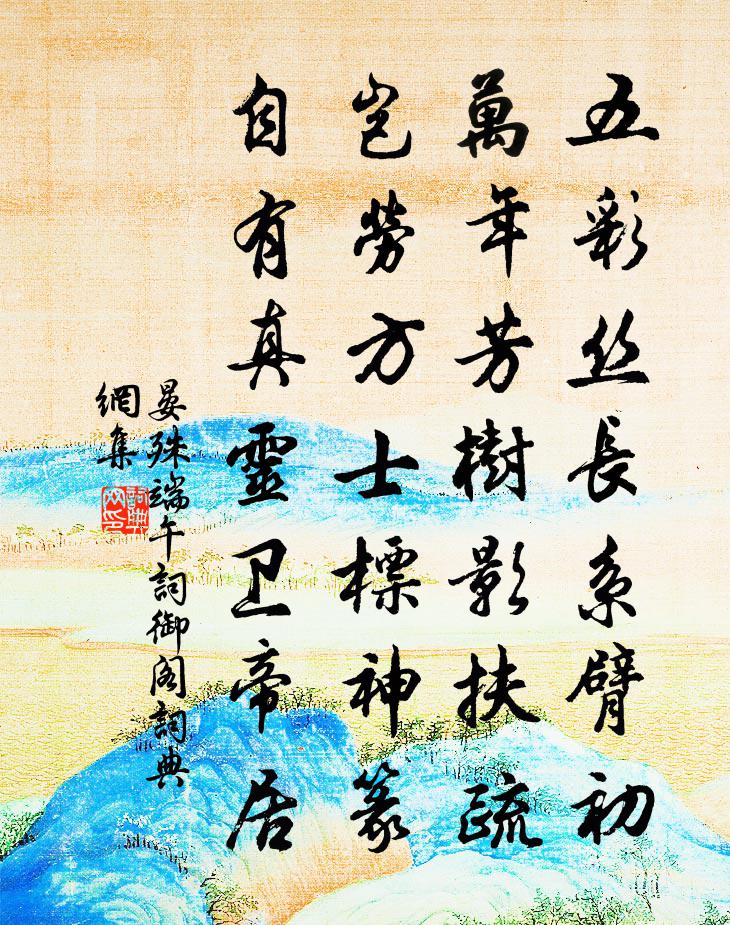 五彩丝長系臂初
萬年芳樹影扶疏
岂勞方士標神篆
自有真靈卫帝居
晏殊端午詞御阁詞典
網集
詞典
网印